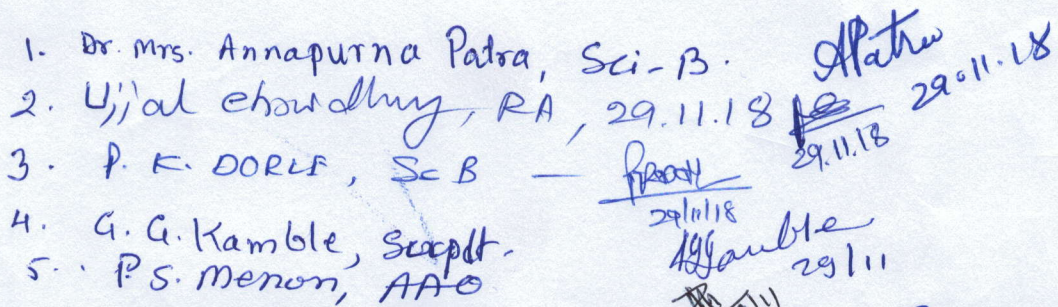 1. Dr. Mrs. Annapurna Patra, Sci-B. APatra 29.11.18
2. Ujjal Chowdhury, RA, 29.11.18 29.11.18
3. P. K. DORLE, Sc B — 29/11/18
4. G. G. Kamble, Supdt. GGKamble 29/11
5. P S. Menon, AAO